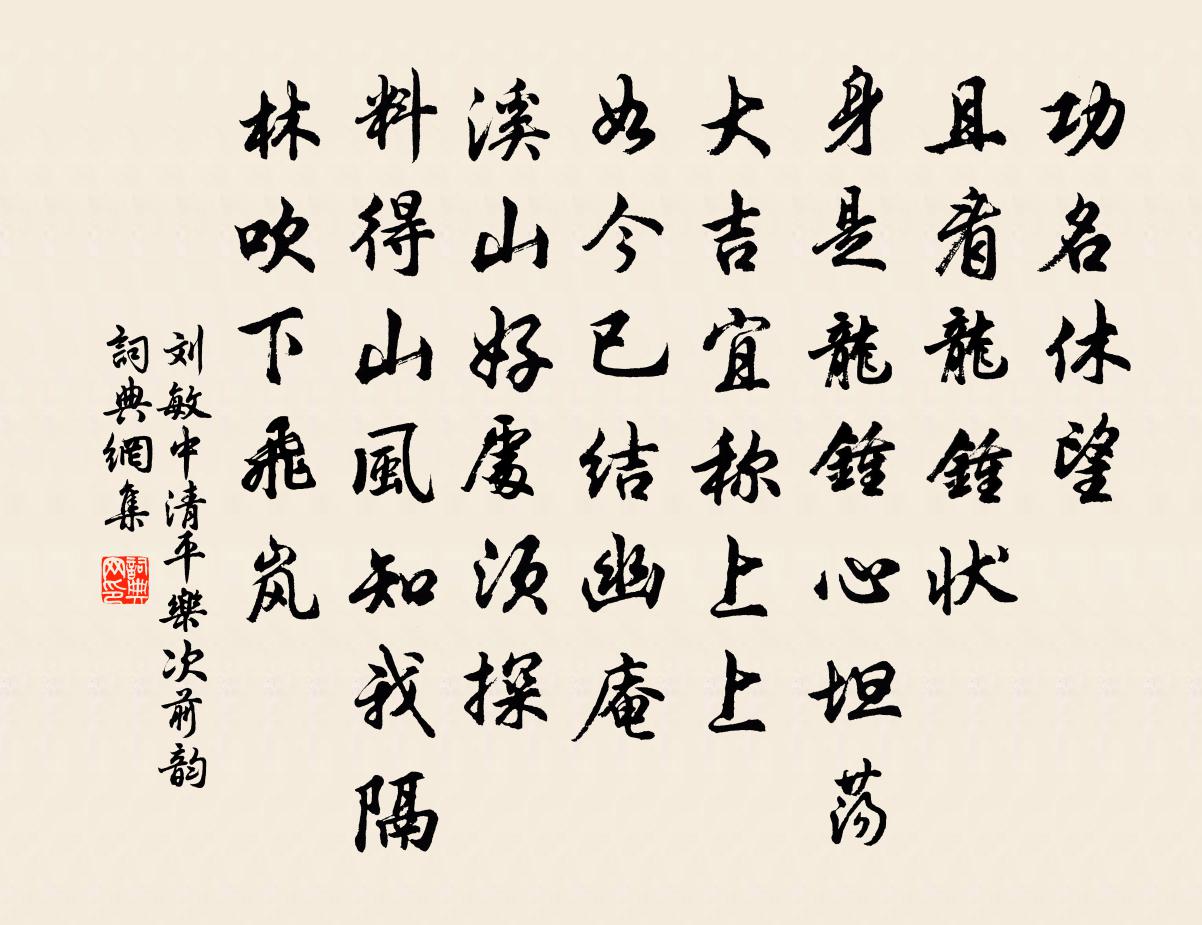 功名休望
且看龍鍾状
身是龍鍾心坦荡
大吉宜称上上
如今已结幽庵
溪山好處须探
料得山風知我隔
林吹下飛岚
刘敏中清平樂次前韵
詞典網集
詞典网印